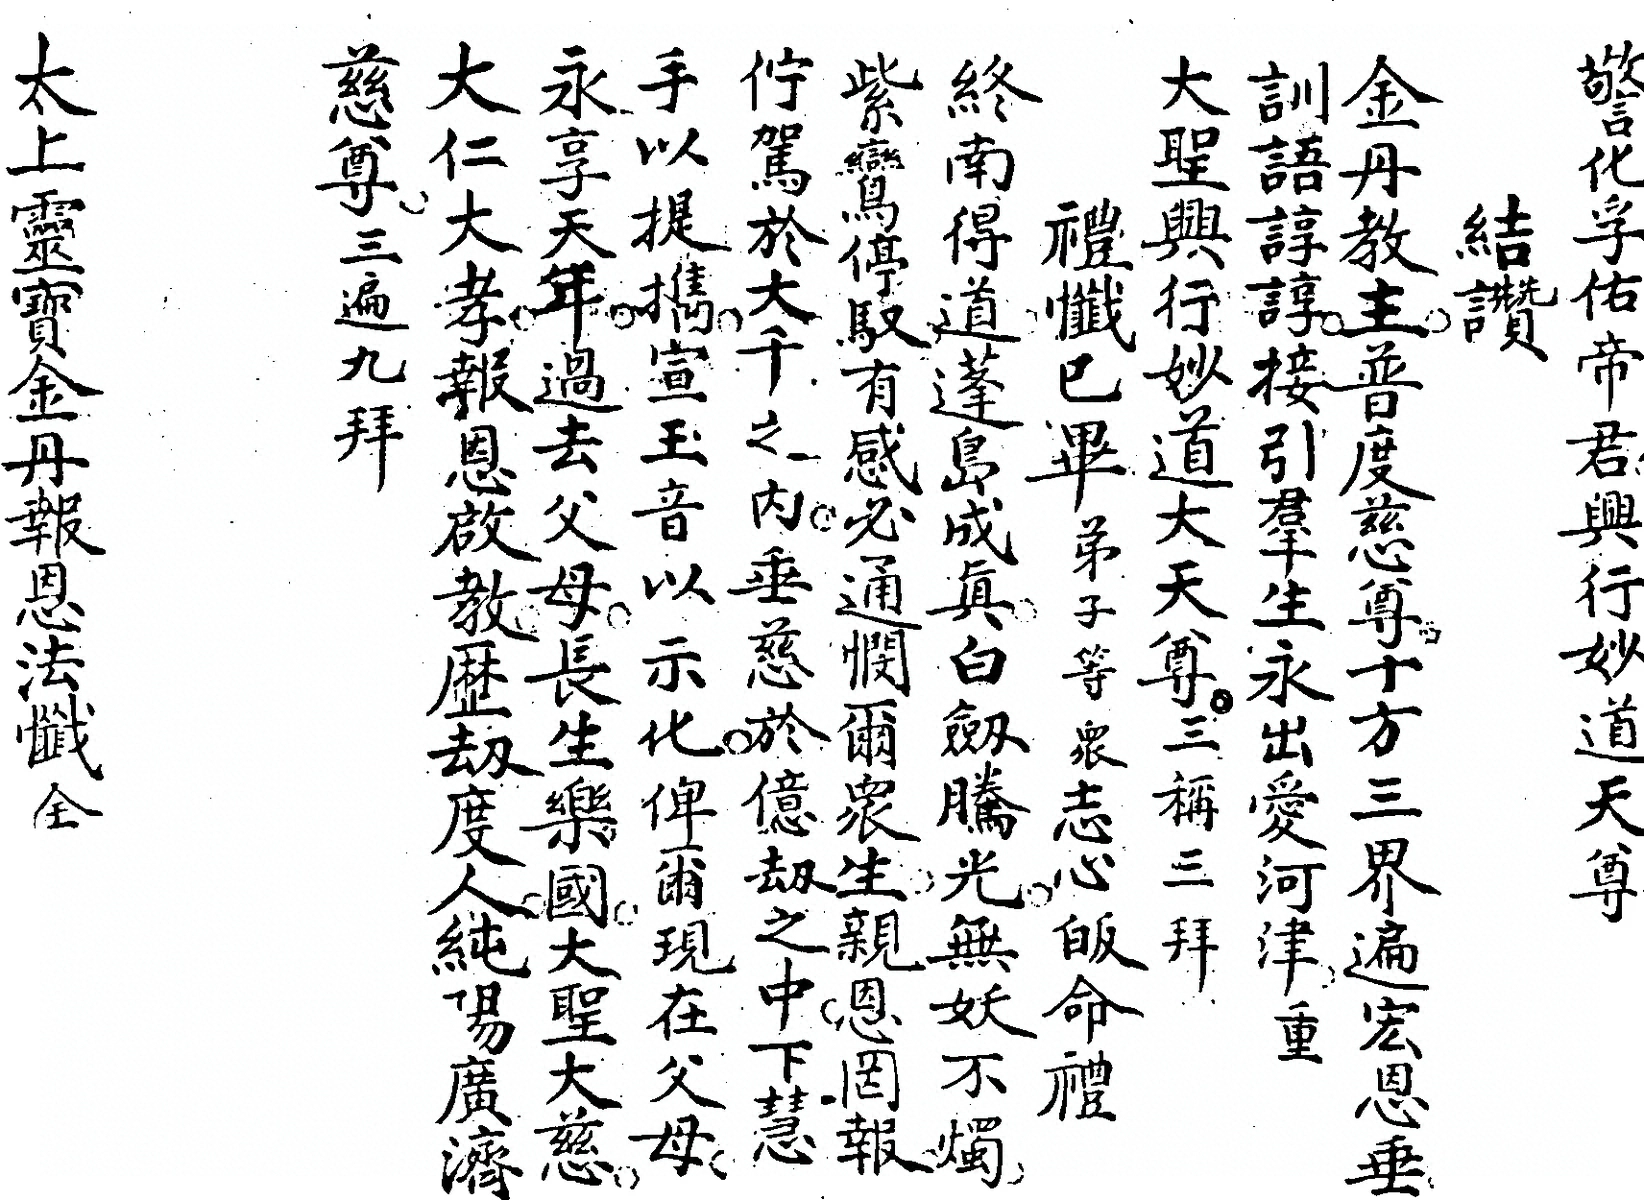 警化孚佑帝君興行妙道天尊
結讚
金丹教主普度慈尊十方三界遍宏恩垂
訓語諄諄接引羣生永出愛河津重
大聖興行妙道大天尊三稱三拜
禮懺已畢弟子等眾志心皈命禮
終南得道蓬島成眞白劔騰光無妖不燭
紫鸞停馭有感必通憫爾眾生親恩罔報
佇駕於大千之內垂慈於億劫之中下慧
手以提攜宣玉音以示化俾爾現在父母
永享天年過去父母長生樂國大聖大慈
大仁大孝報恩啟教歷劫度人純陽廣濟
慈尊三遍九拜
太上靈寶金丹報恩法懺全